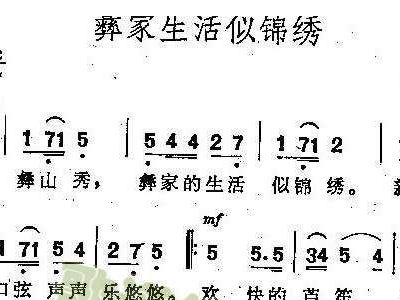 彝家生活似锦绣
1 71 5 | 5 4 4 2 7 | 1 71 5 |
彝山秀, 彝家的生活 似锦绣。
mf
1 71 5 4 | 2 7 5 5 5.5 | 34 5 4
弦 声声 乐悠悠。 欢 快的 芦笙